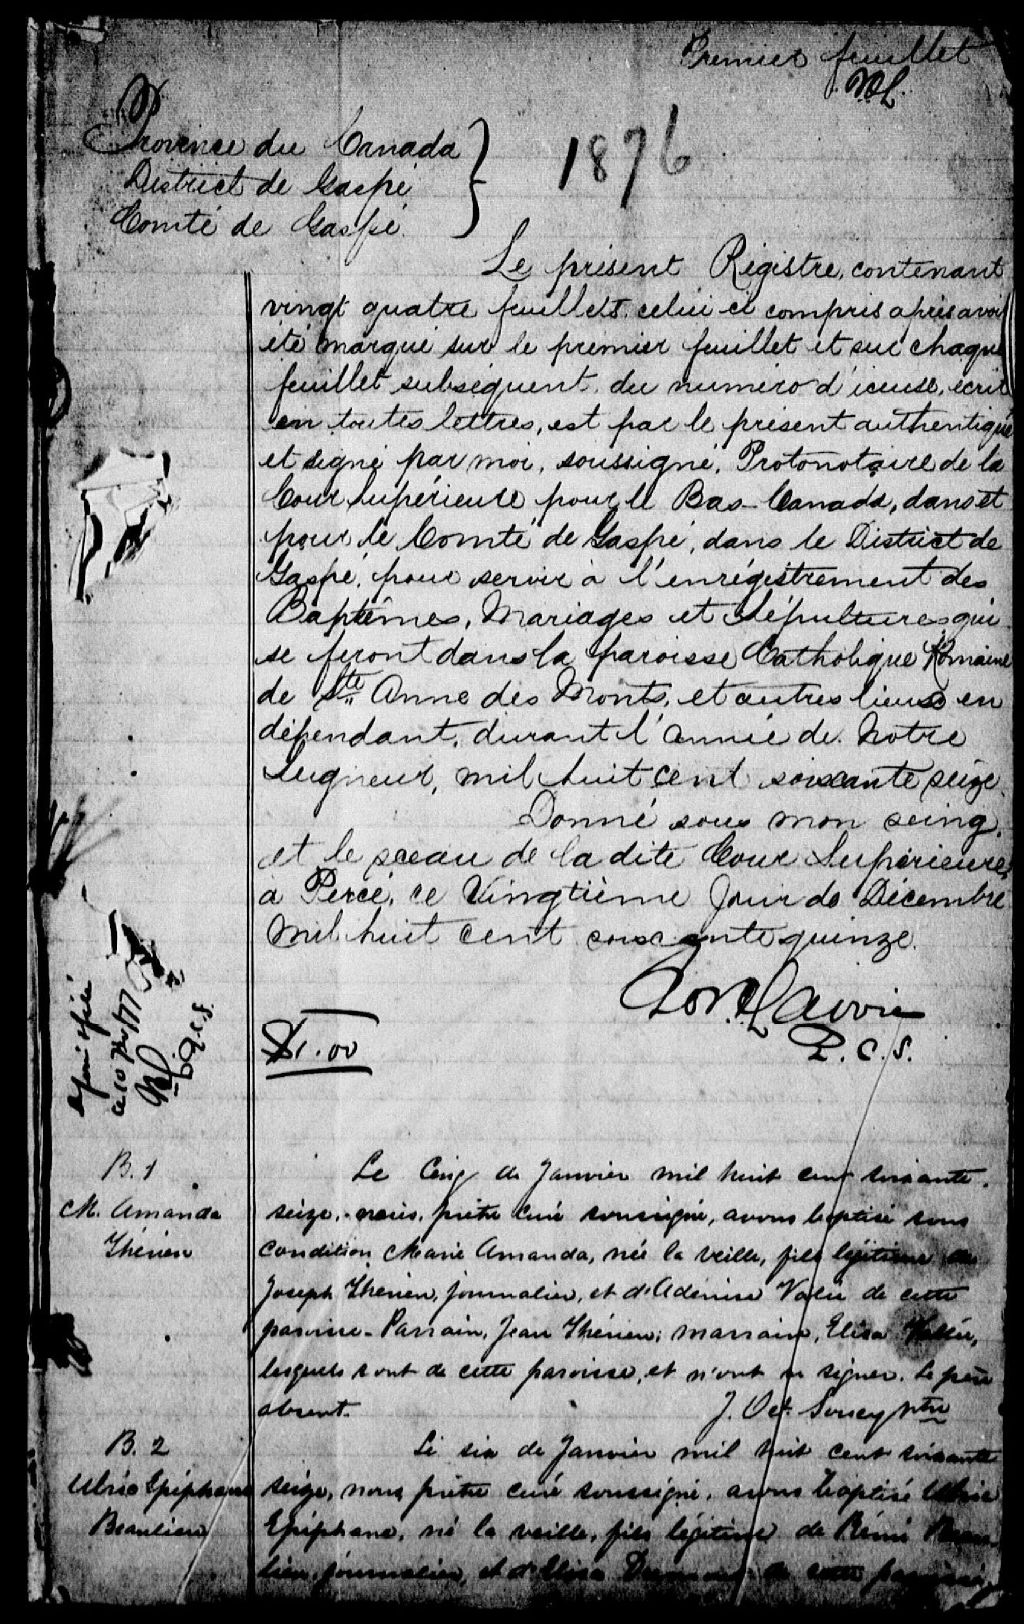 Premier feuillet
Province du Canada
District de Gaspé
Comté de Gaspé.
1876
Le présent Régistre, contenant
vingt quatre feuillets celui ci compris après avoir
été marqué sur le premier feuillet et sur chaque
feuillet subséquent du numéro d'iceux, écrit
en toutes lettres, est par le présent authentiqué
et signé par moi, soussigné, Protonotaire de la
Cour Supérieure pour le Bas-Canada, dans et
pour le Comté de Gaspé, dans le District de
Gaspé, pour servir à l'enrégistrement des
Baptêmes, Mariages et Sépultures qui
se feront dans la paroisse Catholique Romaine
de Ste Anne des Monts, et autres lieux en
dépendant, durant l'année de Notre
Seigneur, mil huit cent soixante seize.
Donné sous mon seing,
et le sceau de la dite Cour Supérieure,
à Percé, ce Vingtième Jour de Décembre
mil huit cent soixante quinze.
P.C.S.
$1.00
B. 1
M. Amanda
Thérien
Le Cinq de Janvier mil huit cent soixante-
seize, nous, prêtre curé soussigné, avons baptisé sous
condition Marie Amanda, née la veille, fille légitime de
Joseph Thérien, journalier, et d'Adénise Valée de cette
paroisse - Parrain, Jean Thérien; marraine, Elisa Vallée,
lesquels sont de cette paroisse, et n'ont su signer. Le père
absent. J. Oct. Soucy ptre
B. 2
Ulric Epiphane
Beaulieu
Le six de Janvier mil huit cent soixante
seize, nous prêtre curé soussigné, avons baptisé Ulric
Epiphane, né la veille, fils légitime de Rémi Beau
lieu, journalier, et d'Elisa de cette paroisse,